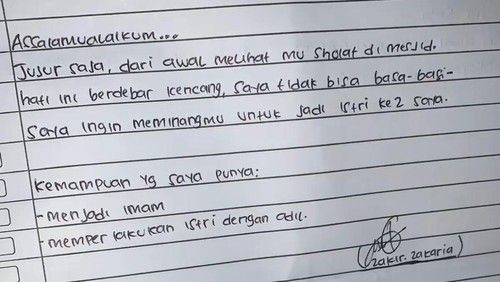 Assalamualaikum...
Jujur saja, dari awal melihat mu sholat di mesjid.
hati ini berdebar kencang, saya tidak bisa basa-basi-
saya ingin meminangmu untuk jadi istri ke2 saya.
Kemampuan yg saya punya:
-menjadi imam
-memperlakukan istri dengan adil.
(zakir.zakaria)